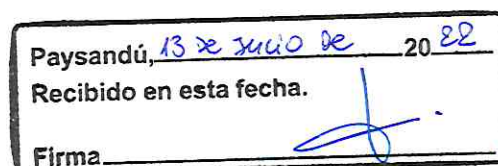 Paysandú, 13 de Julio de 2022
Recibido en esta fecha.
Firma